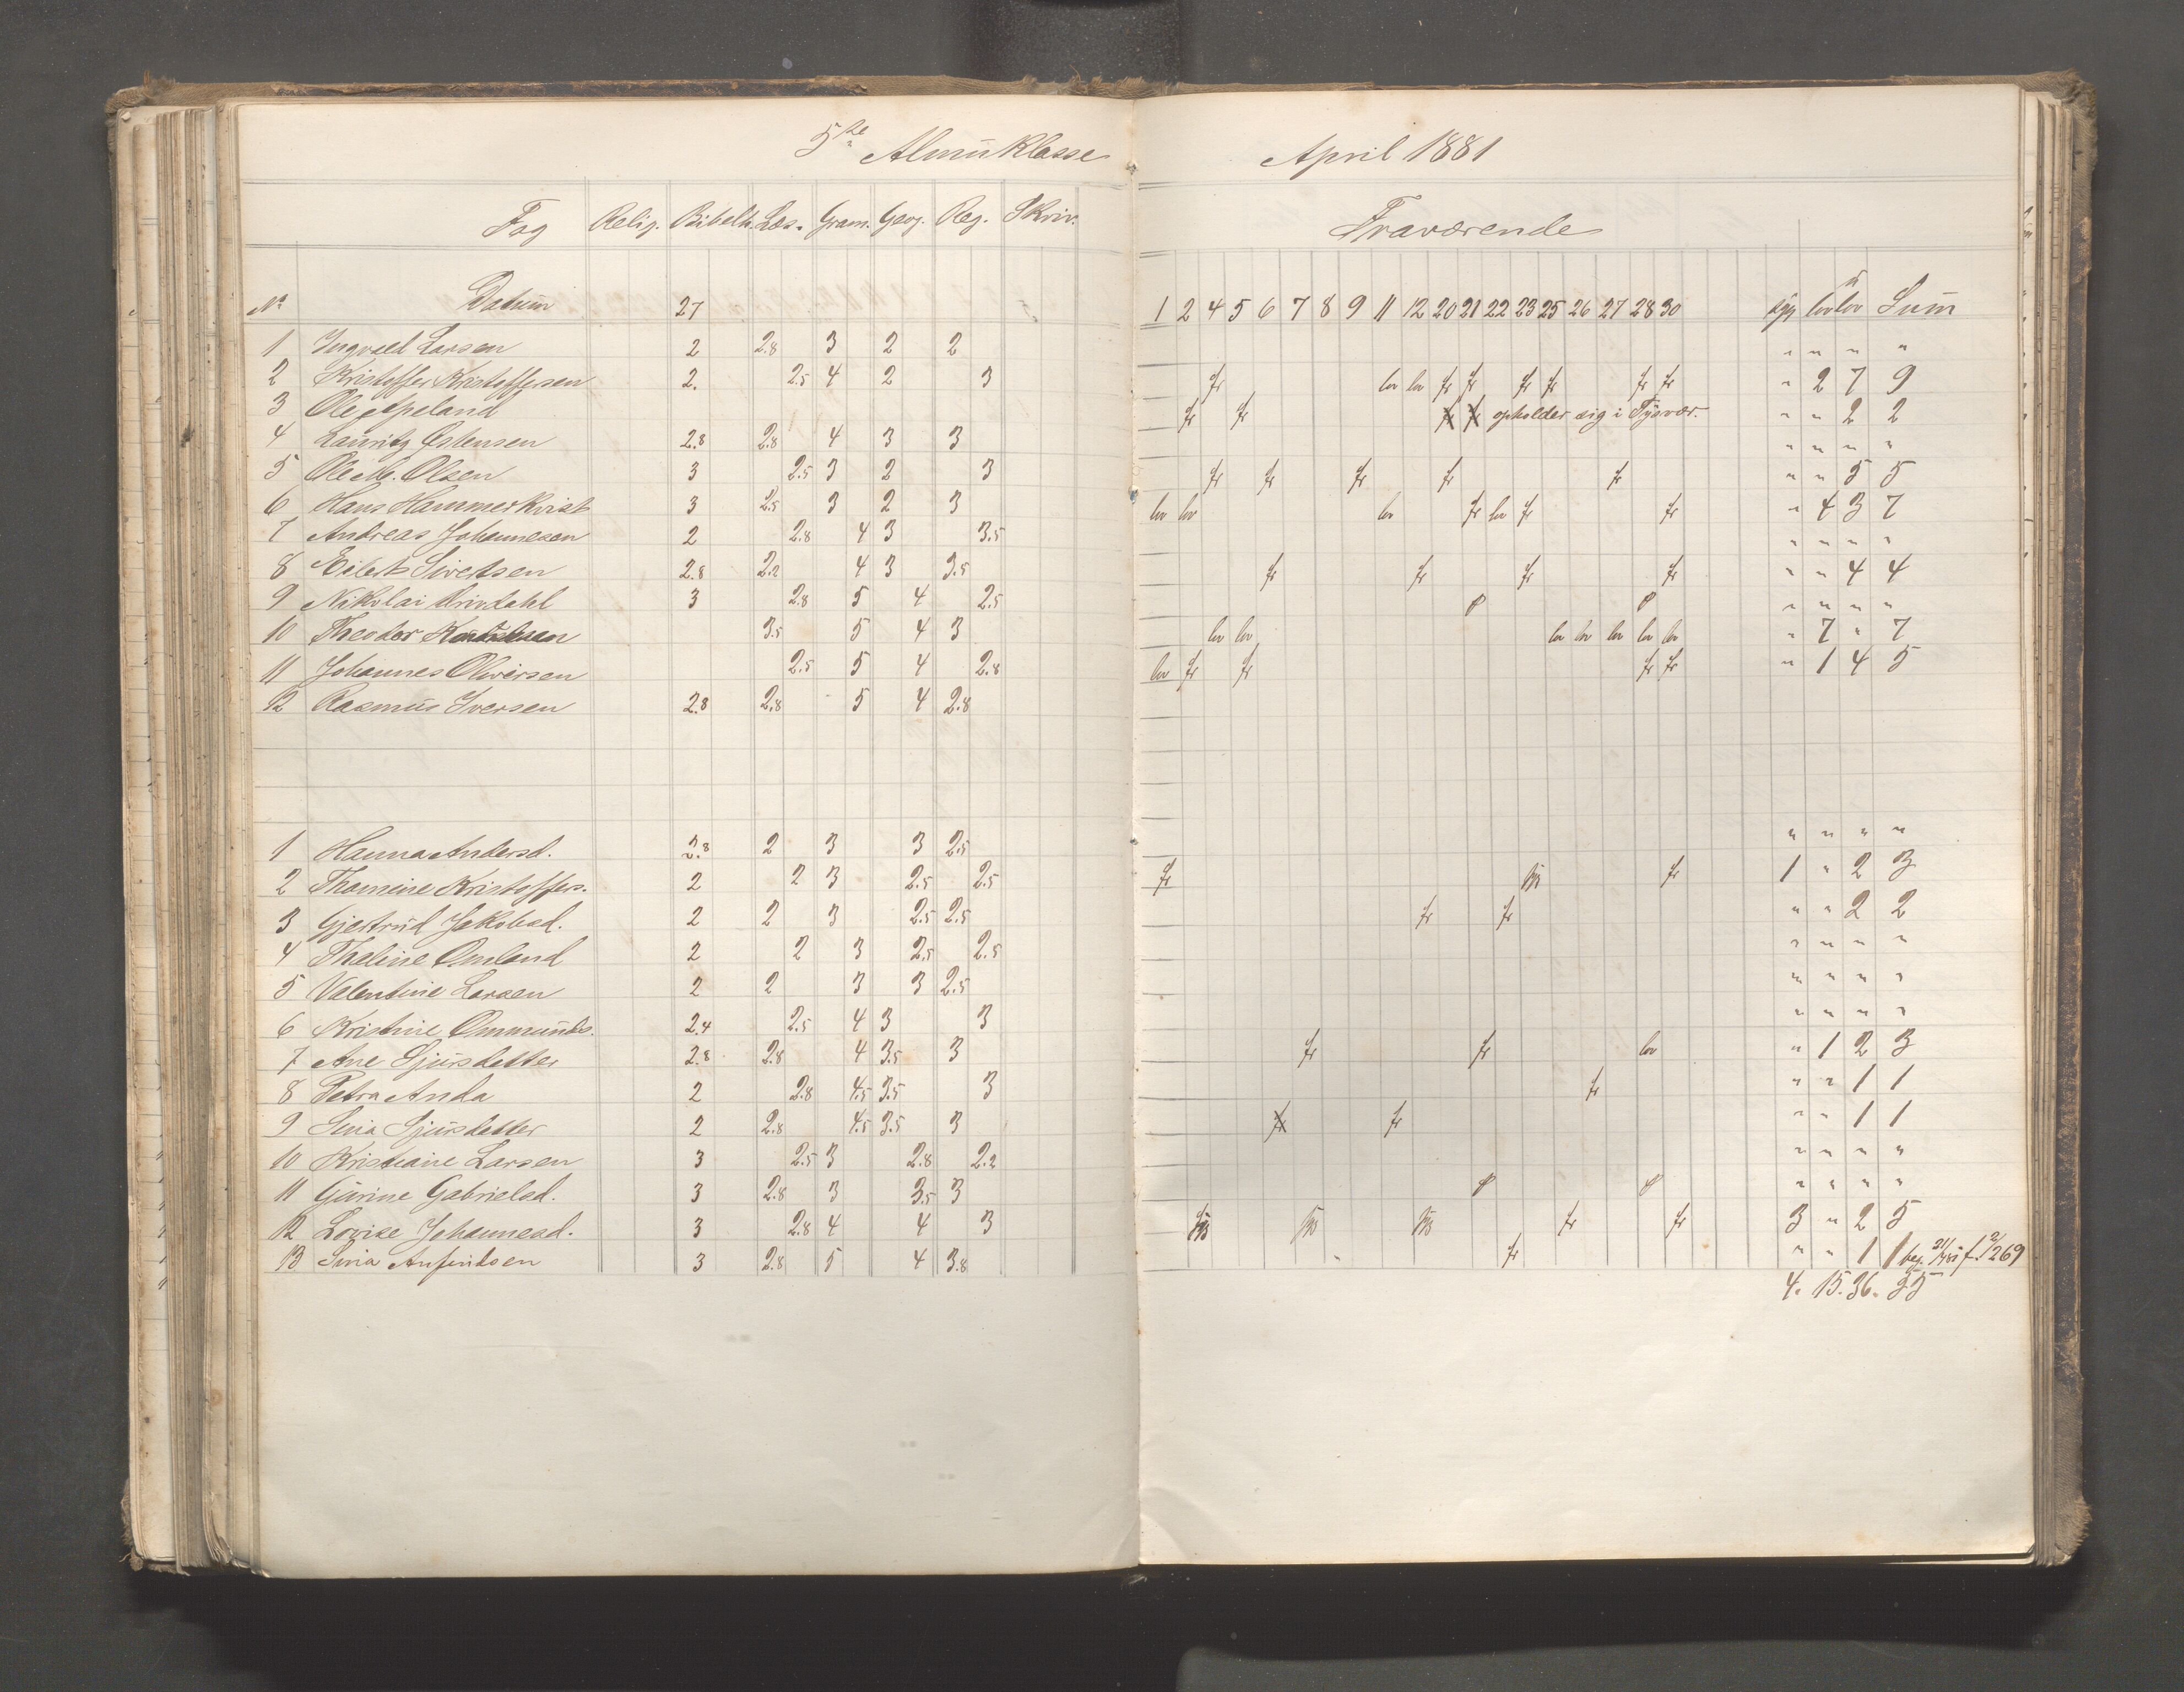 5te Almuklasse April 1881
Fag Relig. Bibelh. Læs. Gram. Geog. Reg. Skriv. Fraværende
No Datum 27 1 2 4 5 6 7 8 9 11 12 20 21 22 23 25 26 27 28 30 syg lov u lov Sum
1 Ingvald Larsen 2 2.8 3 2 2 " " " "
2 Kristoffer Kristoffersen 2. 2.5 4 2 3 fr lov lov fr fr fr fr fr fr " 2 7 9
3 Ole Apeland fr fr fr fr opholder sig i Tysvær. " " 2 2
4 Lauritz Østensen 2.8 2.8 4 3 3 " " " "
5 Ole M. Olsen 3 2.5 3 2 3 fr fr fr fr fr " " 5 5
6 Hans Hammerkvist 3 2.5 3 2 3 lov lov lov fr lov fr fr " 4 3 7
7 Andreas Johannesen 2 2.8 4 3 3.5 " " " "
8 Eilert Sivertsen 2.8 2.2 4 3 3.5 fr fr fr fr " " 4 4
9 Nikolai Urivdahl 3 2.8 5 4 2.5 " " " "
10 Theodor 3.5 5 4 3 lov lov lov lov lov lov lov " 7 " 7
11 Johannes Oliversen 2.5 5 4 2.8 lov fr fr fr fr " 1 4 5
12 Rasmus Iversen 2.8 2.8 5 4 2.8
1 Hanna Andersd. 2.8 2 3 3 2.5 " " " "
2 Thomine Kristoffers. 2 2 3 2.5 2.5 fr syg fr 1 " 2 3
3 Gjertrud Jakobsd. 2 2 3 2.5 2.5 fr fr " " 2 2
4 Theline Omland 2 2 3 2.5 2.5 " " " "
5 Valentine Larsen 2 2 3 3 2.5 " " " "
6 Kristine Ommunds. 2.4 2.5 4 3 3 " " " "
7 Ane Sjursdatter 2.8 2.8 4 3.5 3 fr fr lov " 1 2 3
8 Petra Anda 2 2.8 4.5 3.5 3 fr " " 1 1
9 Sina Sjursdatter 2 2.8 4.5 3.5 3 fr fr " " 1 1
10 Kristiane Larsen 3 2.5 3 2.8 2.2 " " " "
11 Gurine Gabrielsd. 3 2.8 3 3.5 3 " " " "
12 Lovise Johannesd. 3 2.8 4 4 3 syg syg syg fr fr 3 " 2 5
13 Sina Anfindsen 3 2.8 5 4 3.8 fr " " 1 1
4. 15. 36. 55